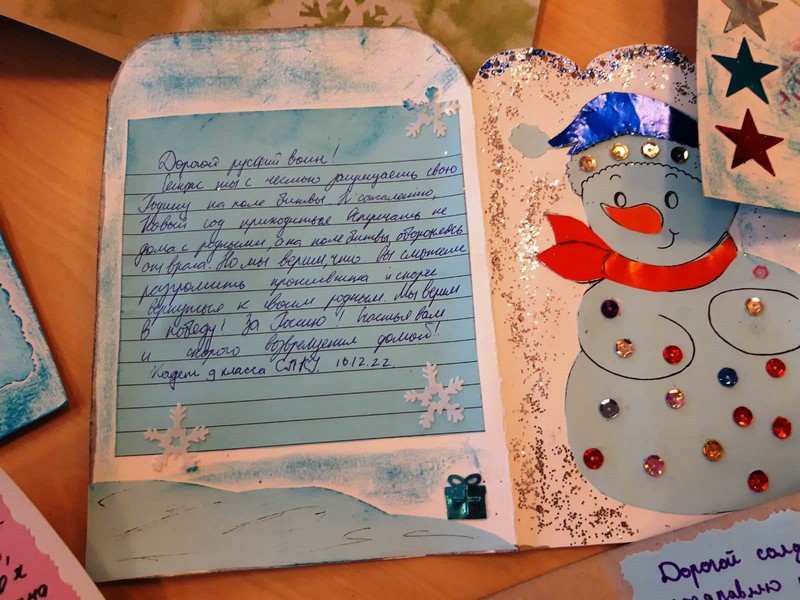 Дорогой русский воин!
Сейчас ты с честью защищаешь свою
Родину на поле битвы. К сожалению,
Новый год приходиться встречать не
дома с родными, а на поле битвы, обороняясь
от врага. Но мы верим, что Вы сможете
разгромить противника и скорее
вернуться к своим родным. Мы верим
в победу! За Россию! Счастья вам
и скорого возвращения домой!
Кадет 9 класса СПКУ 16.12.22.
Дорогой